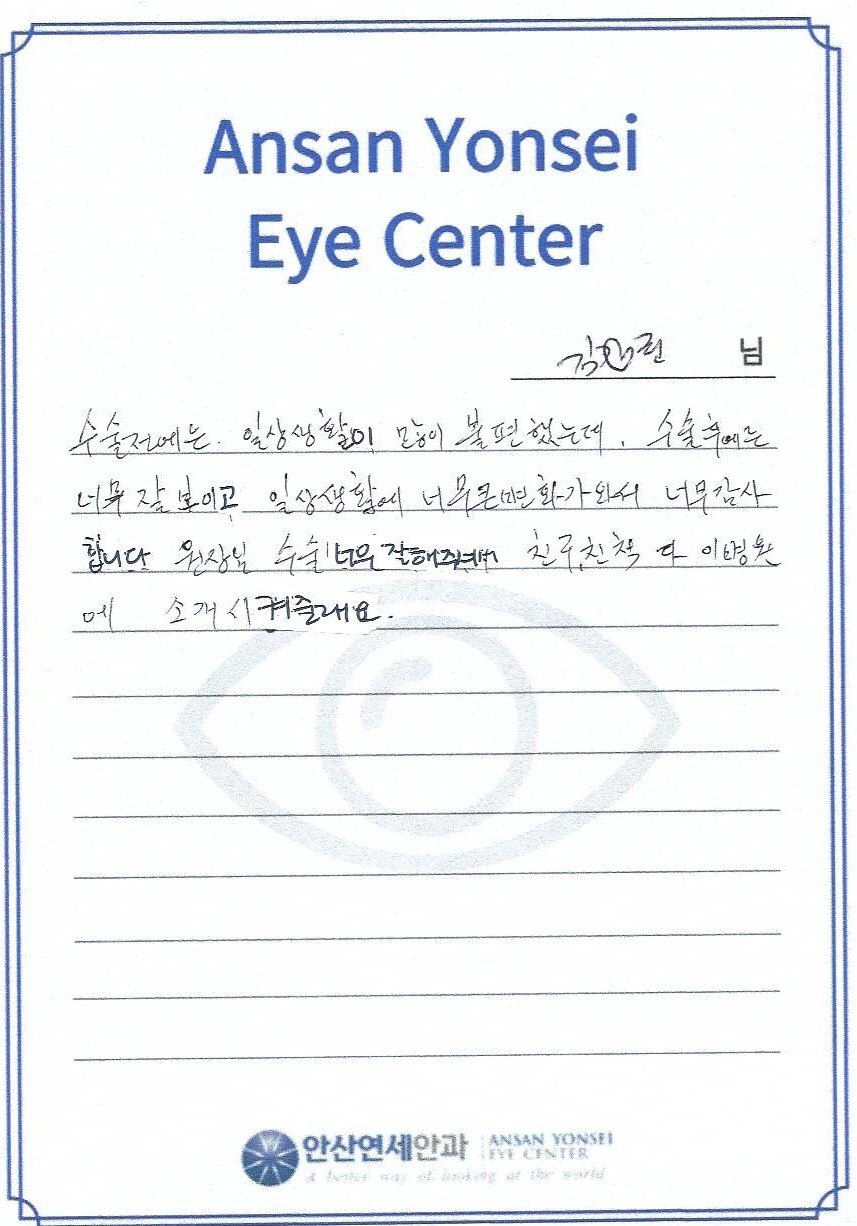 Ansan Yonsei
Eye Center
김♡린 님
수술전에는. 일상생활이 많이 불편했는데, 수술후에는
너무 잘 보이고 일상생활에 너무큰변화가와서 너무감사
합니다 원장님 수술 너무 잘해주셔서 친구친척 다 이병원
에 소개시켜줄래요.
안산연세안과 ANSAN YONSEI
EYE CENTER
A better way of looking at the world